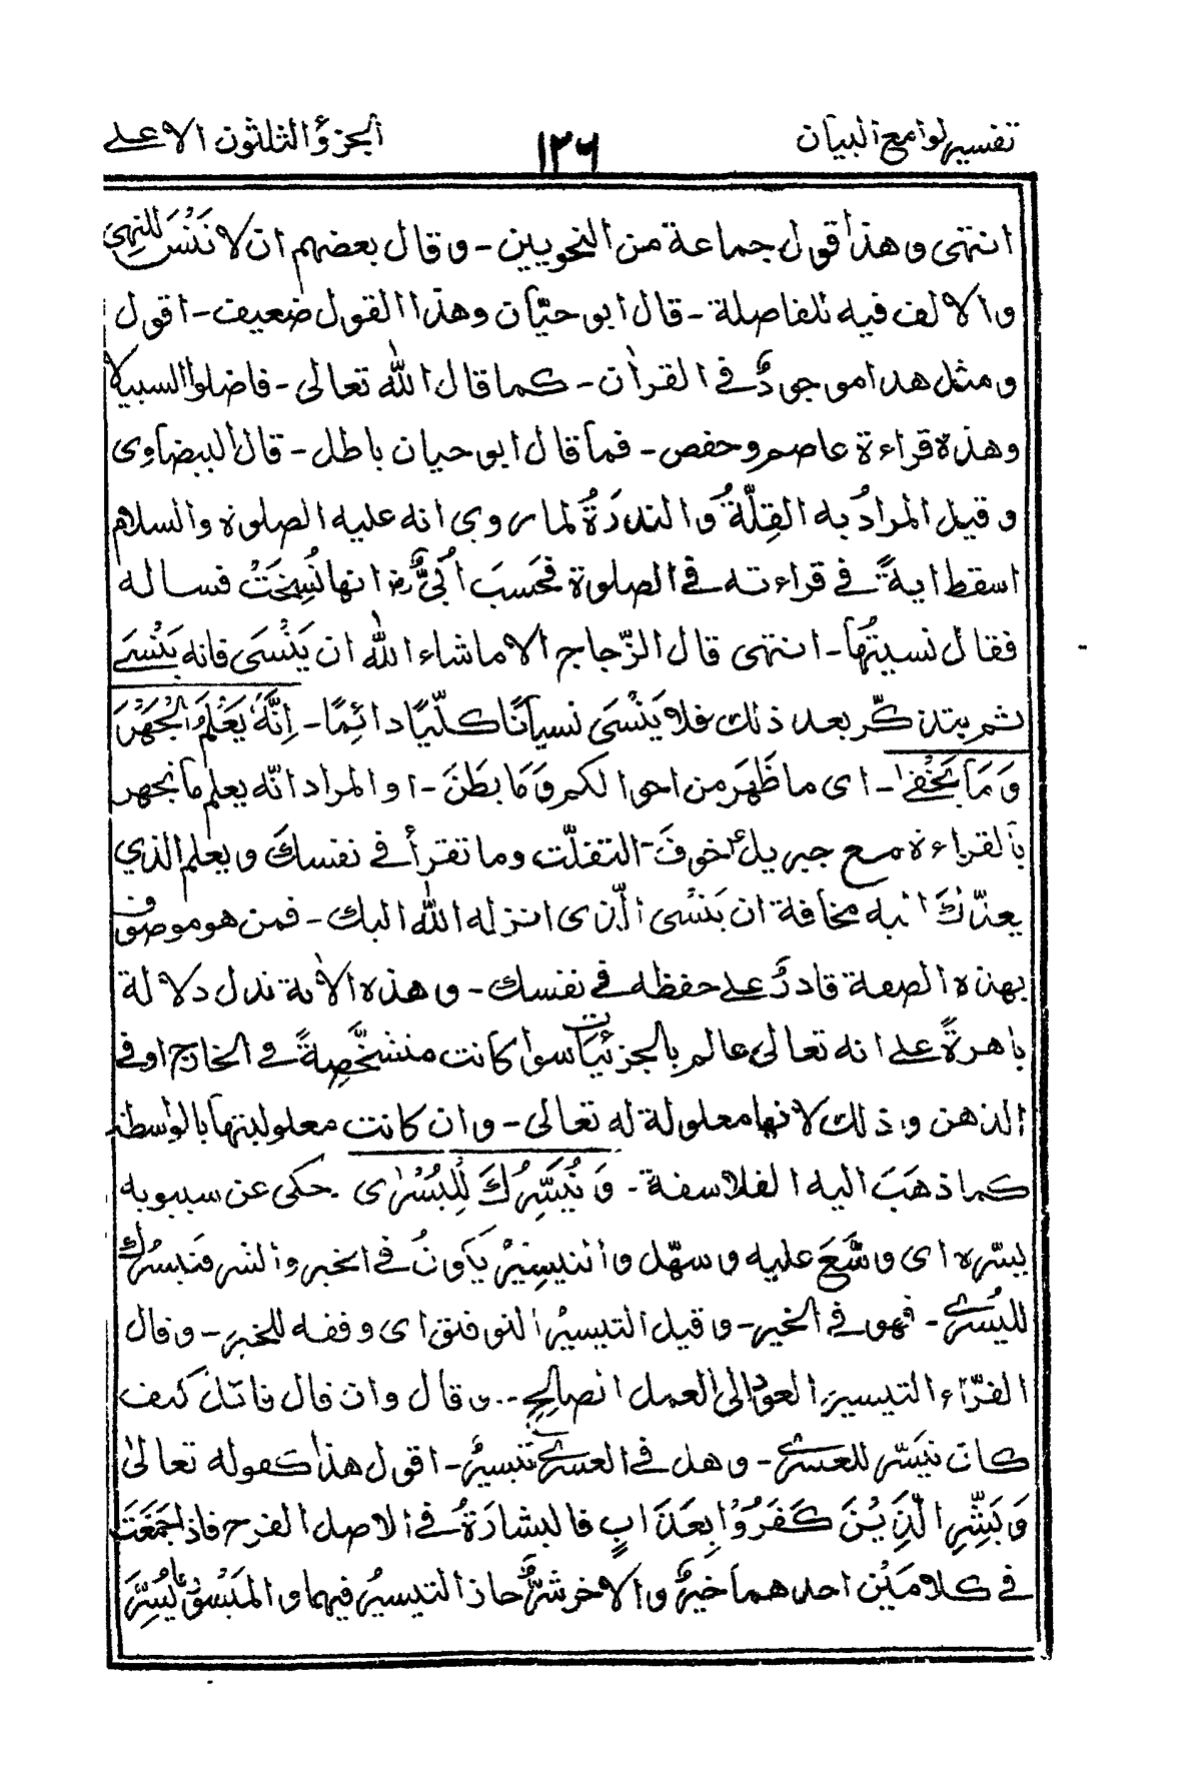 تفسير لوامع البيان ١٣٦ الجزؤ الثلثون الاعلى
انتهى وهذا قول جماعة من النحويين - وقال بعضهم ان لا نَنْسَ للنهي
والالف فيه للفاصلة - قال ابو حيّان وهذا القول ضعيف - اقول
ومثل هذا موجودٌ في القرآن - كما قال الله تعالى - فاضلوا السبيلا
وهذه قراءة عاصم وحفص - فما قال ابو حيان باطل - قال البيضاوى
وقيل المرادُ به القِلّةُ والندرَةُ لما روى انه عليه الصلوة والسلام
اسقط ايةً في قراءته في الصلوة فحَسَبَ اُبَيٌّ رض انها نُسِخَتْ فساله
فقال نسيتُها - انتهى قال الزّجاج الا ماشاء الله ان يَنْسَى فانه يَنْسَى
ثم يتذكّر بعد ذلك فلا يَنْسَى نسيانًا كلّيًا دائِمًا - اِنَّهٗ يَعْلَمُ الْجَهْرَ
وَمَا يَخْفٰى - اى ما ظَهَرَ من احوالكم وَمَا بطَنَ - او المراد انّه يعلم ما تجهر
بالقراءة مع جبريلؑ خوفَ التفلّت وما تقرأ في نفسك ويعلم الذي
يعدّك اليه مخافة ان يَنْسٰى الّذى انزله الله اليك - فمن هو موصوف
بهذه الصفة قادرٌ على حفظه في نفسك - وهذه الاٰية تدل دلالة
باهرةً على انه تعالى عالم بالجزئيات سواٰ كانت متشخِّصةً في الخارج او في
الذهن وذلك لانها معلولة له تعالى - وان كانت معلوليتها بالواسطة
كما ذهَبَ اليه الفلاسفة - وَنُيَسِّرُكَ لِلْيُسْرٰى - حكى عن سيبويه
يسّره اى وسَّعَ عليه وسهّل والتيسِيْرُ يكونُ في الخير والشر فنيسرك
لليُسرٰى - فهو في الخير - وقيل التيسيرُ التوفيق اى وفقه للخير - وقال
الفرّاء التيسير العود الى العمل الصالحِ - وقال وان قال قائل كيف
كان نيَسّر للعسرى - وهل في العسرى تيسيرٌ - اقول هذا كقوله تعالىٰ
وَبَشِّرِ الَّذِيْنَ كَفَرُوْا بِعَذَابٍ فالبشارَةُ في الاصل الفرح فاذا جمَعَتَ
في كلامَيْن احدهما خيرٌ والاخر شرٌّ جاز التيسيرُ فيهما والمَبْسُوْ يُسِرَّ